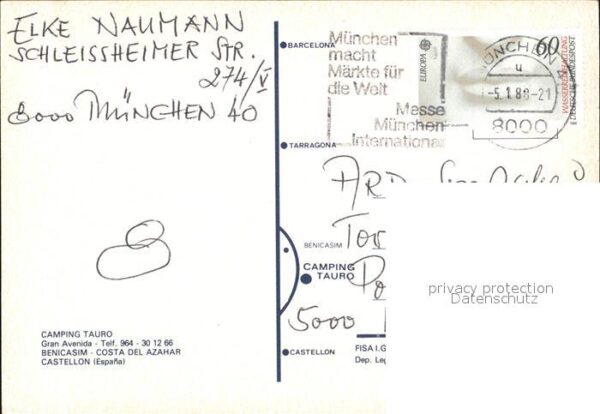 ELKE NAUMANN
SCHLEISSHEIMER STR.
274/V
8000 MÜNCHEN 40
BARCELONA
München
macht
Märkte für
die Welt
Messe
München
International
EUROPA
60
MÜNCHEN
u
-5.1.88-21
8000
WASSERREINHALTUNG
DEUTSCHE BUNDESPOST
TARRAGONA
ARD
BENICASIM
CAMPING
TAURO
5000
CASTELLON
privacy protection
Datenschutz
CAMPING TAURO
Gran Avenida - Telf. 964 - 30 12 66
BENICASIM - COSTA DEL AZAHAR
CASTELLON (España)
FISA I.G
Dep. Leg